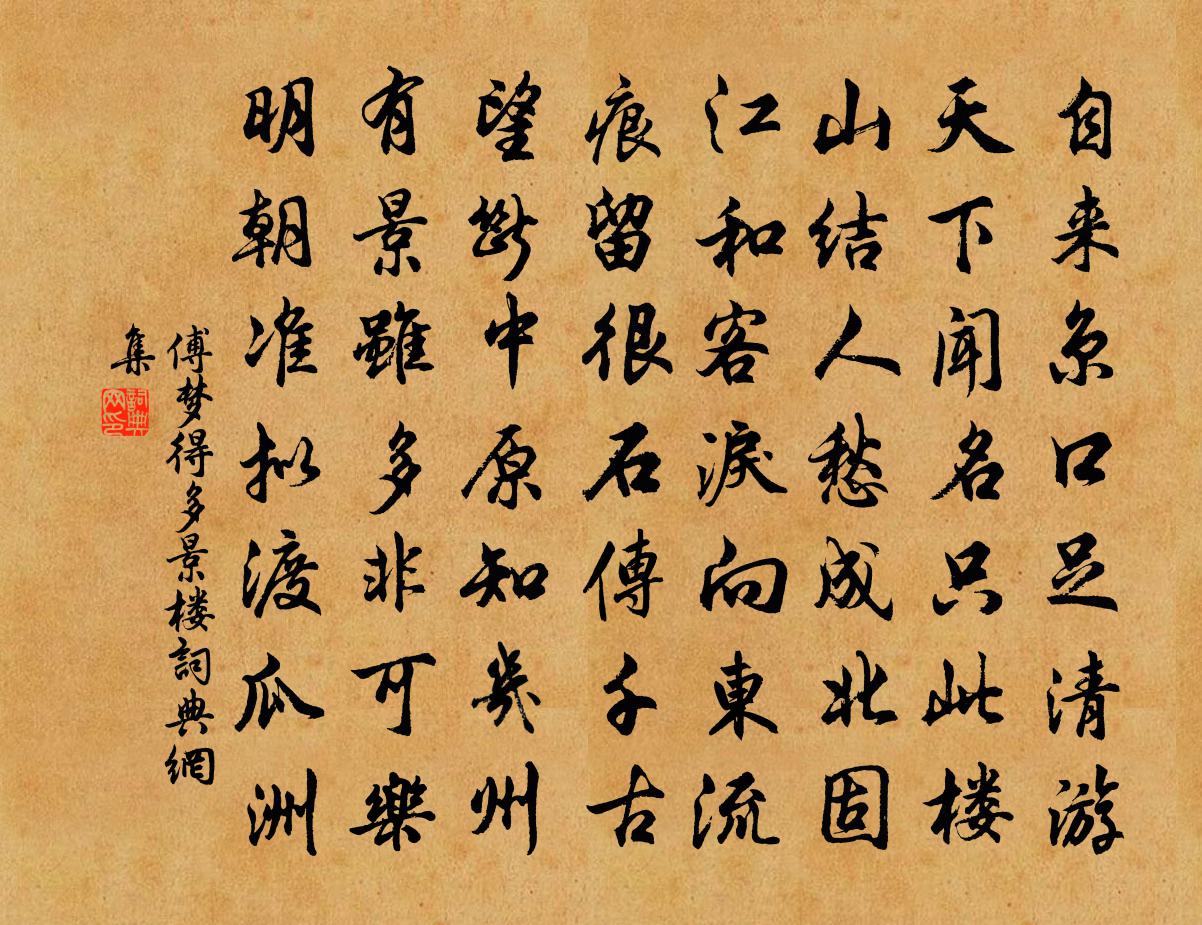 自来京口足清游
天下聞名只此楼
山结人愁成北固
江和客淚向東流
痕留很石傳千古
望斷中原知幾州
有景雖多非可樂
明朝准拟渡瓜洲
傅梦得多景楼詞典網
集
詞典
网印